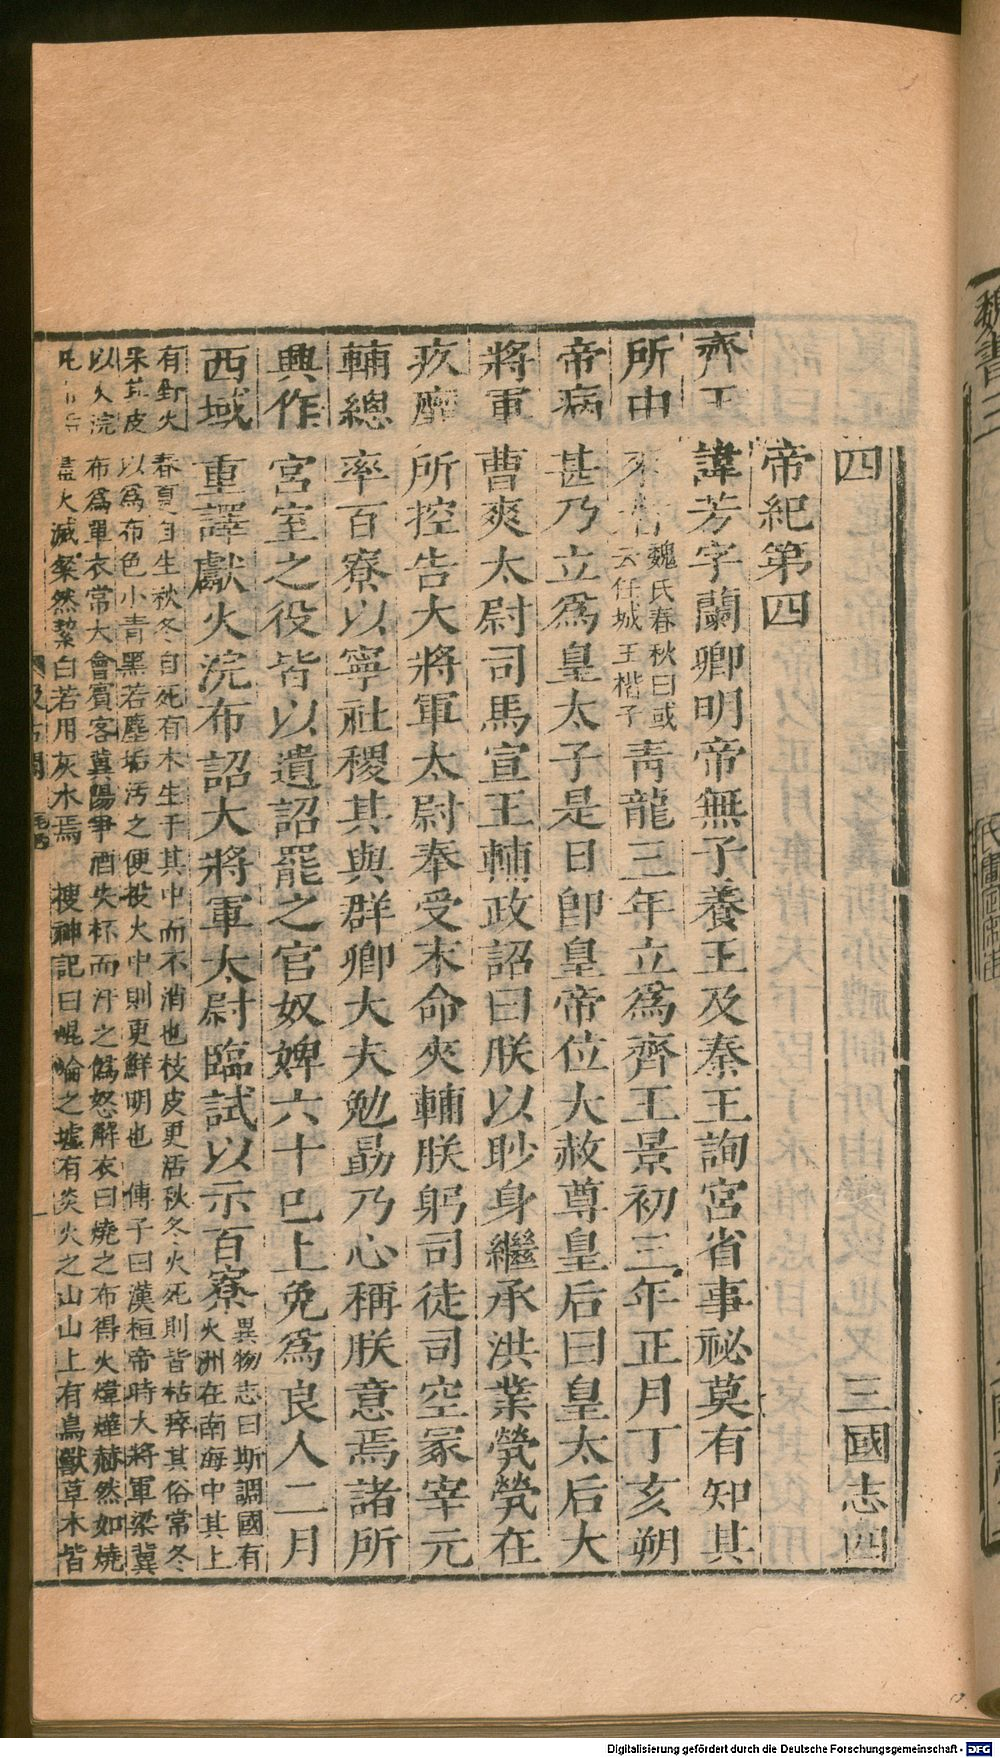 四 三國志四
帝紀第四
齊王諱芳字蘭卿明帝無子養王及秦王詢宮省事祕莫有知其
所由來者魏氏春秋曰或云任城王楷子青龍三年立為齊王景初三年正月丁亥朔
帝病甚乃立為皇太子是日即皇帝位大赦尊皇后曰皇太后大
將軍曹爽太尉司馬宣王輔政詔曰朕以眇身繼承洪業煢煢在
疚靡所控告大將軍太尉奉受末命夾輔朕躬司徒司空冢宰元
輔總率百寮以寧社稷其與群卿大夫勉勗乃心稱朕意焉諸所
興作宮室之役皆以遺詔罷之官奴婢六十巳上免為良人二月
西域重譯獻火浣布詔大將軍太尉臨試以示百寮異物志曰斯調國有火洲在南海中其上
有野火春夏自生秋冬自死有木生于其中而不消也枝皮更活秋冬火死則皆枯瘁其俗常冬
采其皮以為布色小青黑若塵垢汚之便投火中則更鮮明也 傅子曰漢桓帝時大將軍梁冀
以火浣布為單衣常大會賓客冀陽爭酒失杯而汙之偽怒解衣曰燒之布得火煒燁赫然如燒
凡布垢盡火滅粲然絜白若用灰水焉 搜神記曰崐崘之墟有炎火之山山上有鳥獸草木皆
魏書三
Digitalisierung gefördert durch die Deutsche Forschungsgemeinschaft - DFG